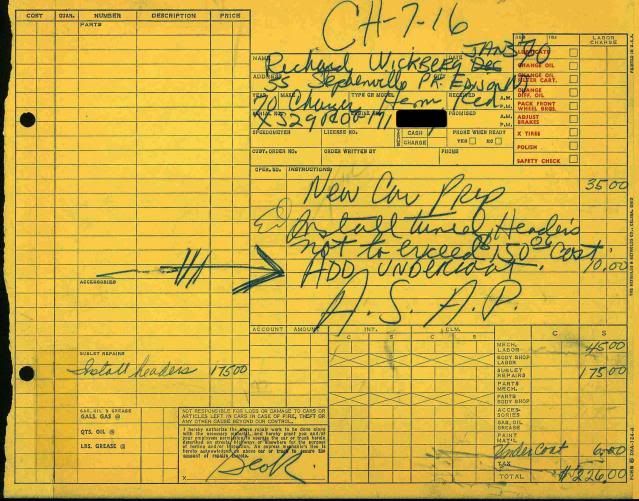 CH-7-16
COST QUAN. NUMBER DESCRIPTION PRICE
PARTS
LABOR CHARGE
NAME Richard Wickberg DATE JAN 5 70
ADDRESS 55 Stephenville PK. EDISON NJ
LUBRICATE
CHANGE OIL
CHANGE OIL FILTER CART.
CHANGE DIFF. OIL
PACK FRONT WHEEL BRGS.
ADJUST BRAKES
X TIRES
POLISH
SAFETY CHECK
YEAR MAKE TYPE OR MODEL RECEIVED A.M. P.M.
70 Charger Hemi Red
SERIAL NO. PROMISED A.M. P.M.
XS29R0G 711
SPEEDOMETER LICENSE NO. CASH CHARGE PHONE WHEN READY YES NO
CUST. ORDER NO. ORDER WRITTEN BY PHONE
OPER. NO. INSTRUCTIONS:
New Car Prep 35.00
Install tunnel Headers
not to exceed $150.00 cost.
ADD UNDERCOAT. 10.00
A.S.A.P.
ACCESSORIES
ACCOUNT AMOUNT INT. CLM. C S
C S C S C S
MECH. LABOR 45.00
BODY SHOP LABOR
SUBLET REPAIRS 175.00
PARTS MECH.
PARTS BODY SHOP
ACCESSORIES
GAS, OIL GREASE
PAINT MAT'L
UnderCoat 6.00
TAX
TOTAL $226.00
SUBLET REPAIRS
Install headers 175.00
GAS, OIL & GREASE
GALS. GAS @
QTS. OIL @
LBS. GREASE @
NOT RESPONSIBLE FOR LOSS OR DAMAGE TO CARS OR
ARTICLES LEFT IN CARS IN CASE OF FIRE, THEFT OR
ANY OTHER CAUSE BEYOND OUR CONTROL.
I hereby authorize the above repair work to be done along
with the necessary material, and hereby grant you and/or
your employees permission to operate the car or truck herein
described on streets, highways or elsewhere for the purpose
of testing and/or inspection. An express mechanic's lien is
hereby acknowledged on above car or truck to secure the
amount of repairs thereto.
X